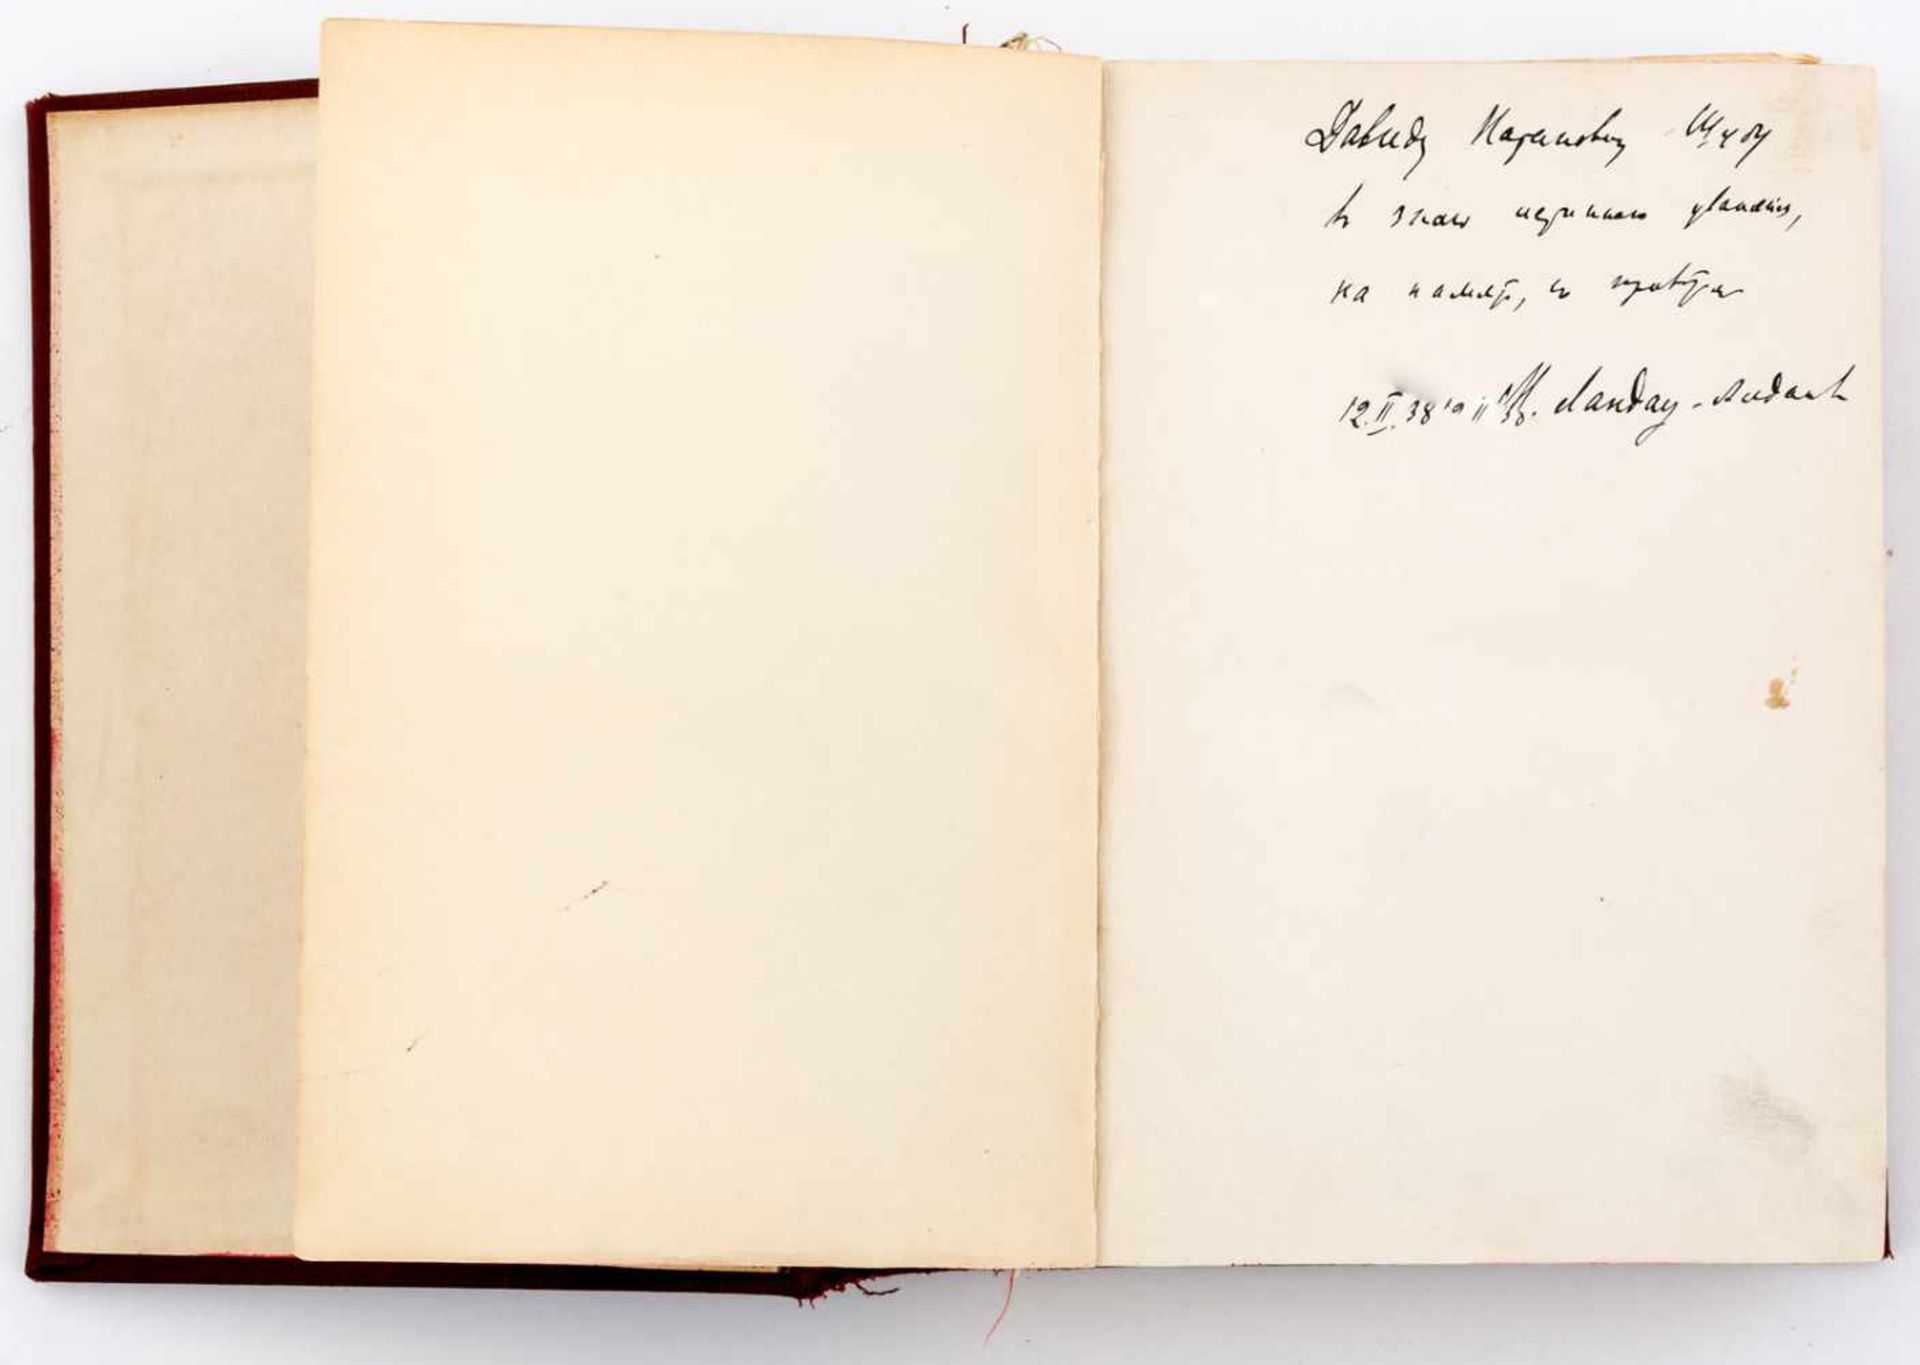 Давиду Натановичу Шубу
в знак искреннего уважения,
на память, с приветом
12.II.38 М. Ландау-Алданов